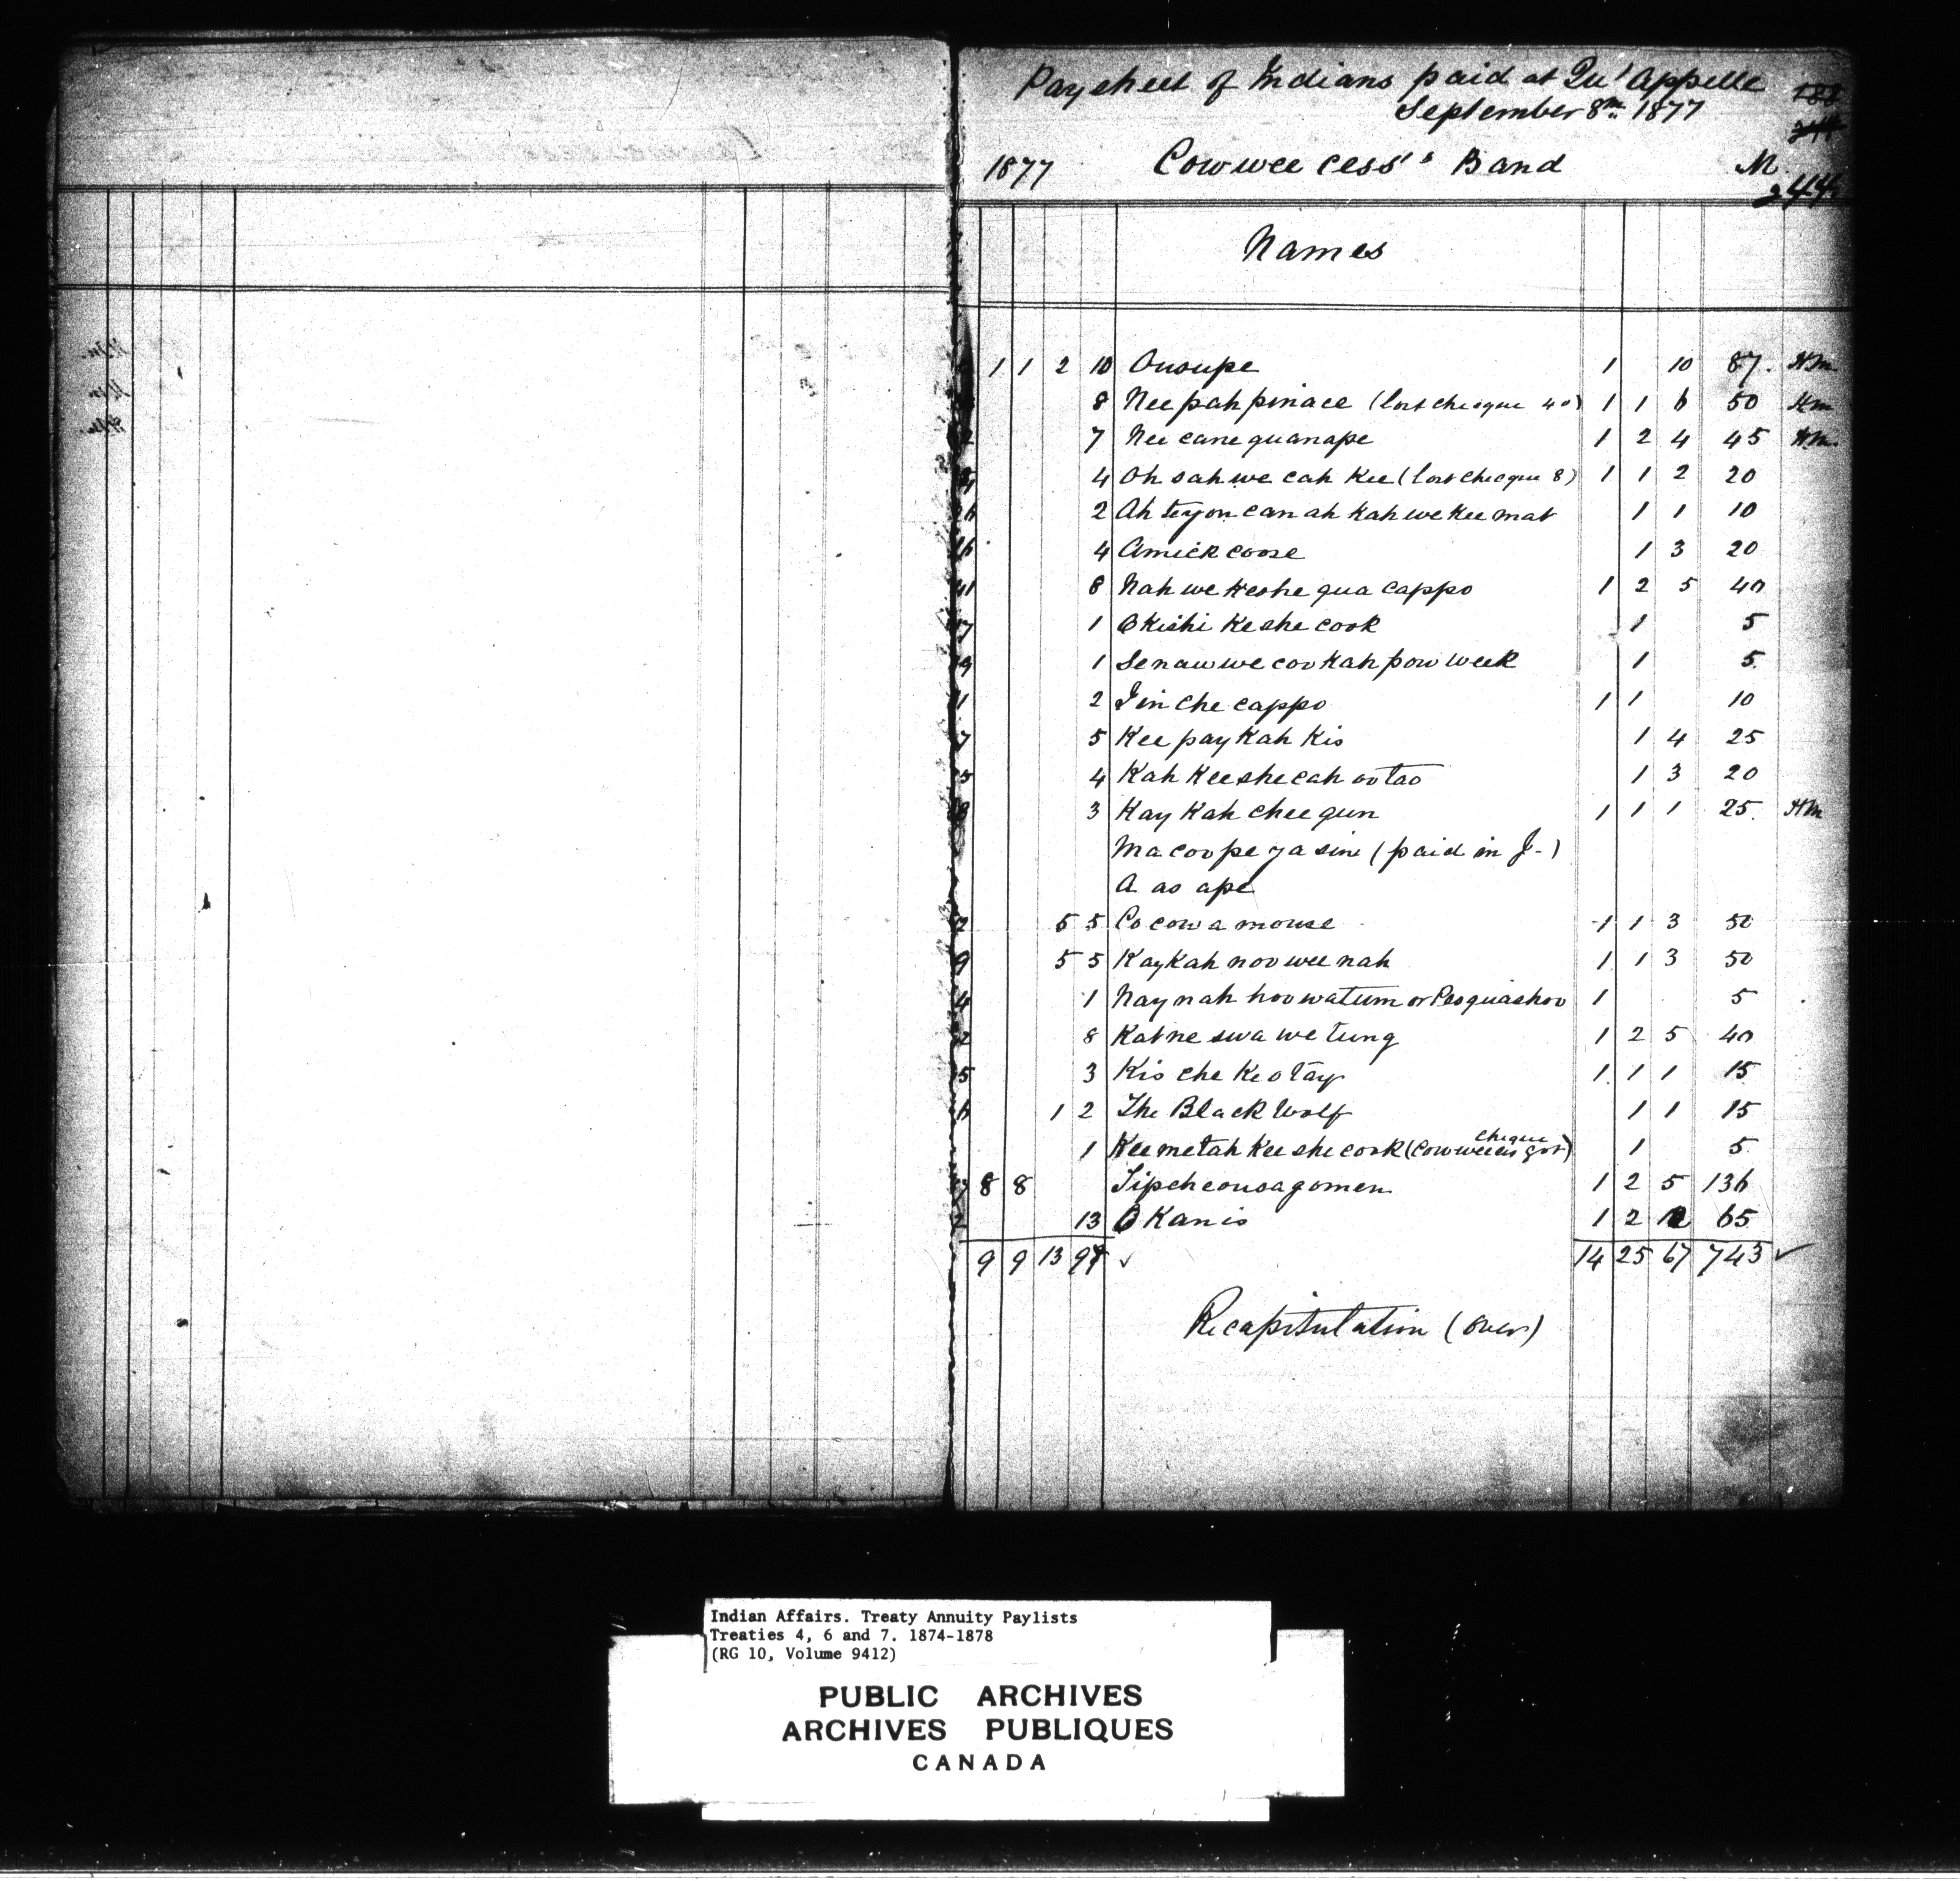 Paysheet of Indians paid at Qu'Appelle
September 8th 1877
1877 Cowwee cess's Band M
244
Names
1 1 2 10 Ououpe 1 10 87. HM
8 Nee pah pinace (lost cheque 40) 1 1 6 50 HM
7 Nee cane quanape 1 2 4 45 HM
4 Oh sah we cah Kee (lost cheque 8) 1 1 2 20
2 Ah teyon can ah Kah we Kee mat 1 1 10
4 Amick coose 1 3 20
41 8 Nah we Keshe qua cappo 1 2 5 40
1 O Kishi Ke she cook 1 5
1 Senaw we coo Kah pow week 1 5.
2 Jin che cappo 1 1 10
5 Kee pay Kah Kis 1 4 25
4 Kah Kee she cah oo tao 1 3 20
3 Kay Kah chee gun 1 1 1 25. HM
Ma coo pe ya sini (paid in J-)
A as ape
5 5 Co cow a mouse 1 1 3 50
9 5 5 Kay Kah noo wee nah 1 1 3 50
4 1 Nay nah hoo watum or Pasquashoo 1 5
8 Katne swa we tung 1 2 5 40
5 3 Kis che Ke o tay 1 1 1 15
1 2 The Black Wolf 1 1 15
1 Kee metah Kee she cook (Cowweecis got cheque) 1 5
8 8 Tipcheousagomen 1 2 5 136
2 13 O Kanis 1 2 10 65
9 9 13 97 ✓ 14 25 67 743 ✓
Recapitulation (over)
Indian Affairs. Treaty Annuity Paylists
Treaties 4, 6 and 7. 1874-1878
(RG 10, Volume 9412)
PUBLIC ARCHIVES
ARCHIVES PUBLIQUES
CANADA